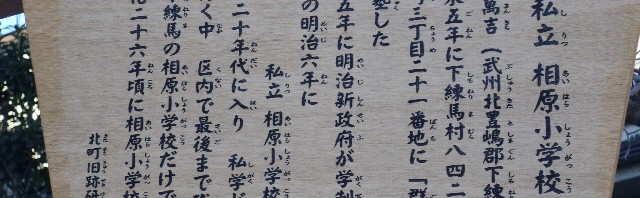 私立 相原小学校
萬吉（武州北豊嶋郡下練
永五年に下練馬村八四二
三丁目二十一番地に「群
基した
五年に明治新政府が学制
の明治六年に
私立 相原小学校
二十年代に入り 私学が
く中 区内で最後まで残
練馬の相原小学校だけで
治二十六年頃に相原小学校
北町旧跡研